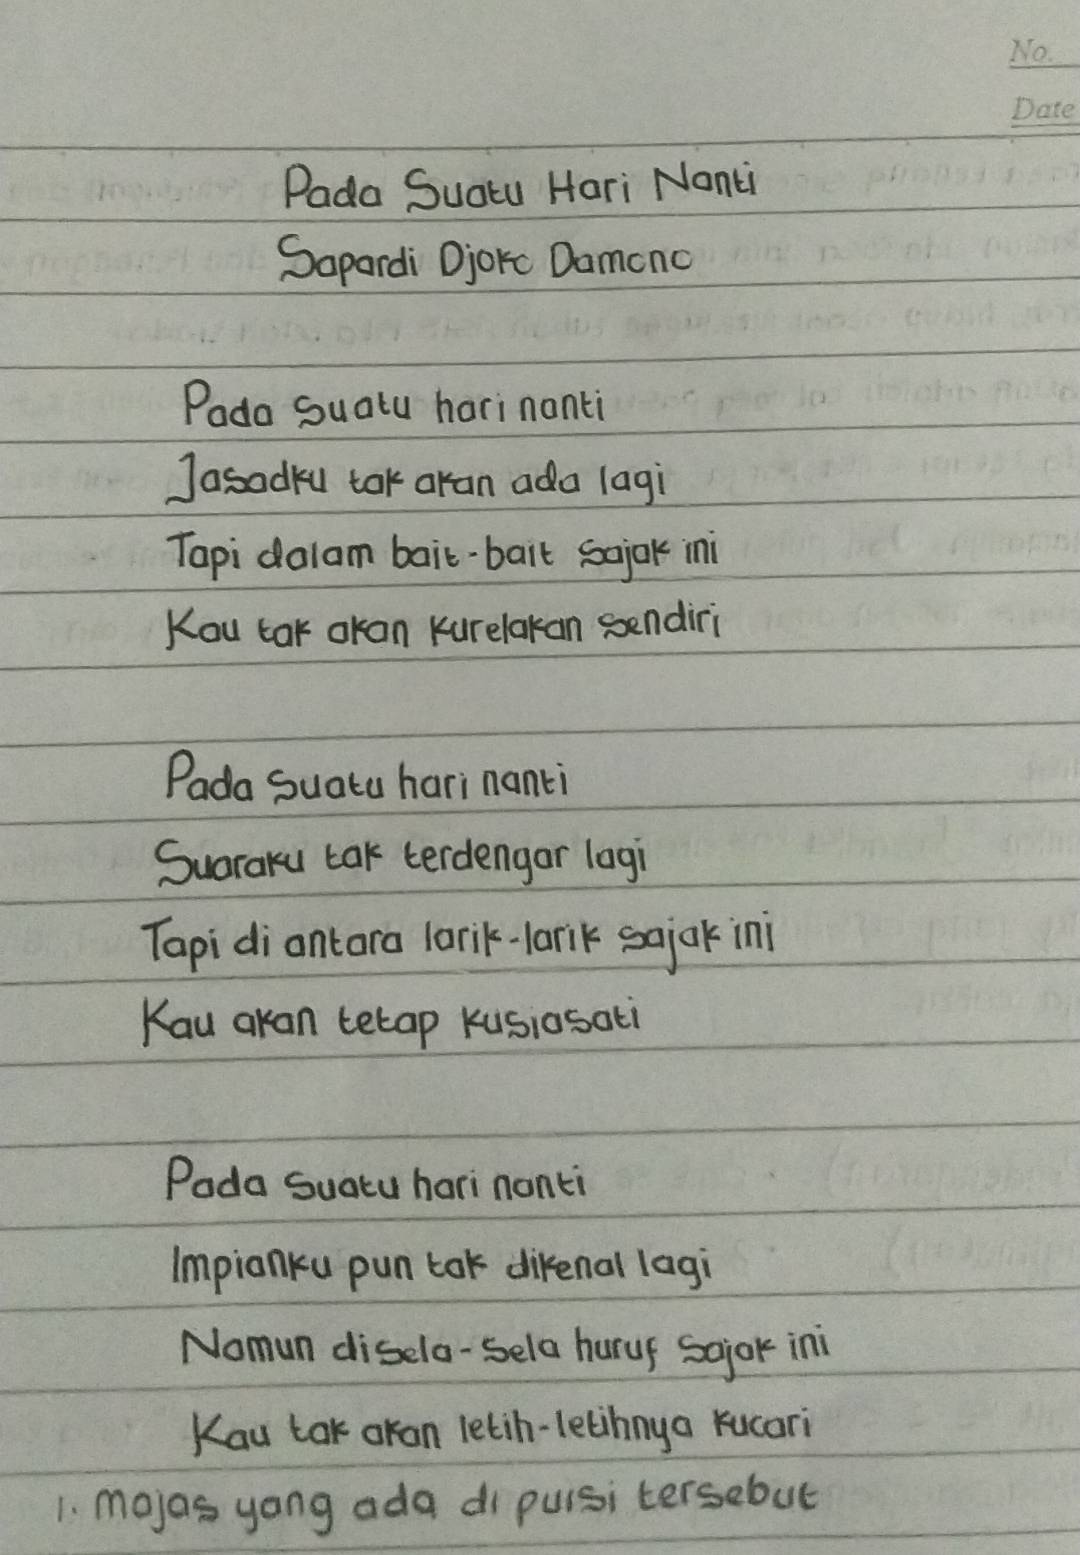 No.
Date
Pada Suatu Hari Nanti
Sapardi Djoko Damono
Pada suatu hari nanti
Jasadku tak akan ada lagi
Tapi dalam bait-bait sajak ini
Kau tak akan kurelakan sendiri
Pada suatu hari nanti
Suaraku tak terdengar lagi
Tapi di antara larik-larik sajak ini
Kau akan tetap kusiasati
Pada suatu hari nanti
Impianku pun tak dikenal lagi
Namun disela-sela huruf sajak ini
Kau tak akan letih-letihnya kucari
1. majas yang ada di puisi tersebut